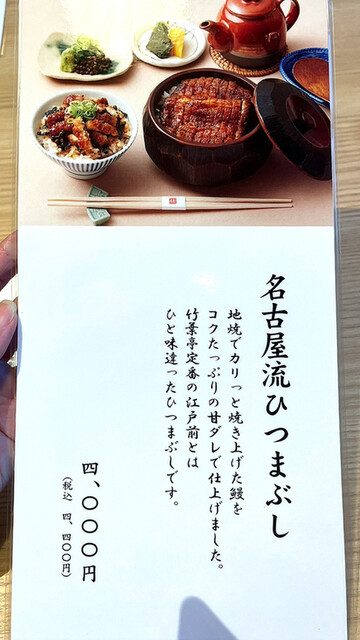 名古屋流ひつまぶし
地焼でカリっと焼き上げた鰻を
コクたっぷりの甘ダレで仕上げました。
竹葉亭定番の江戸前とは
ひと味違ったひつまぶしです。
四、〇〇〇円
（税込 四、四〇〇円）